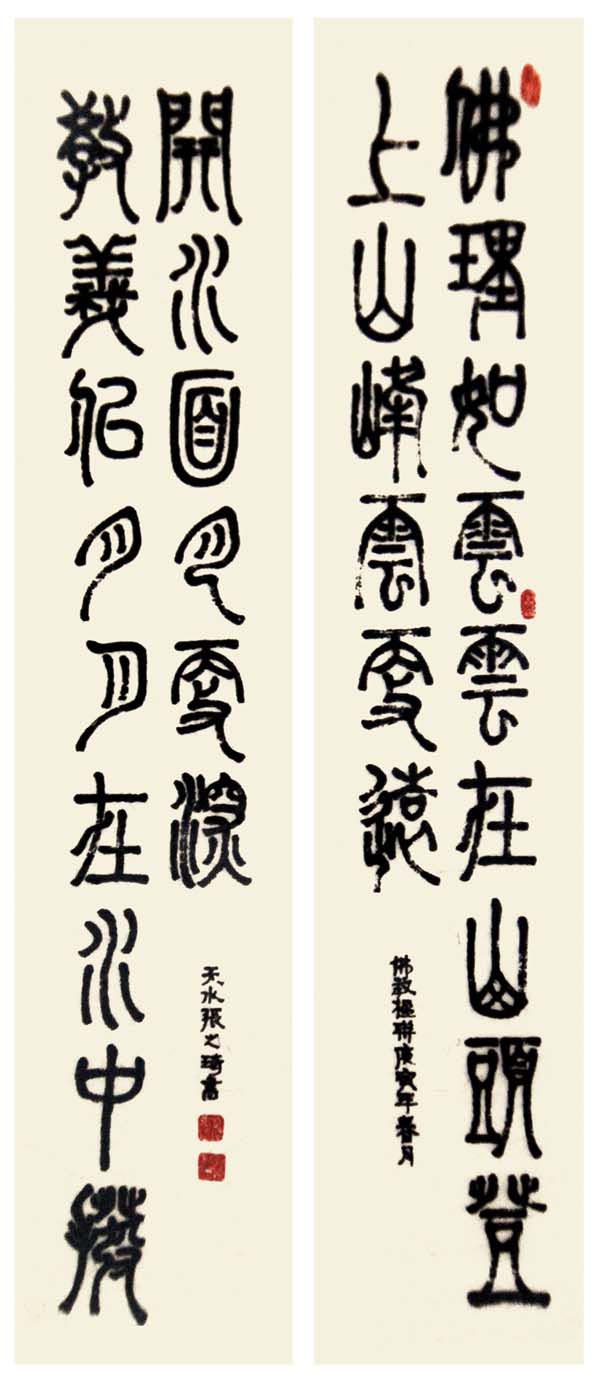 佛理如雲雲在山頭登
上山峰雲更遠
佛教楹聯庚寅年春月
教義似月月在水中撥
開水面月更深
天水張之琦書